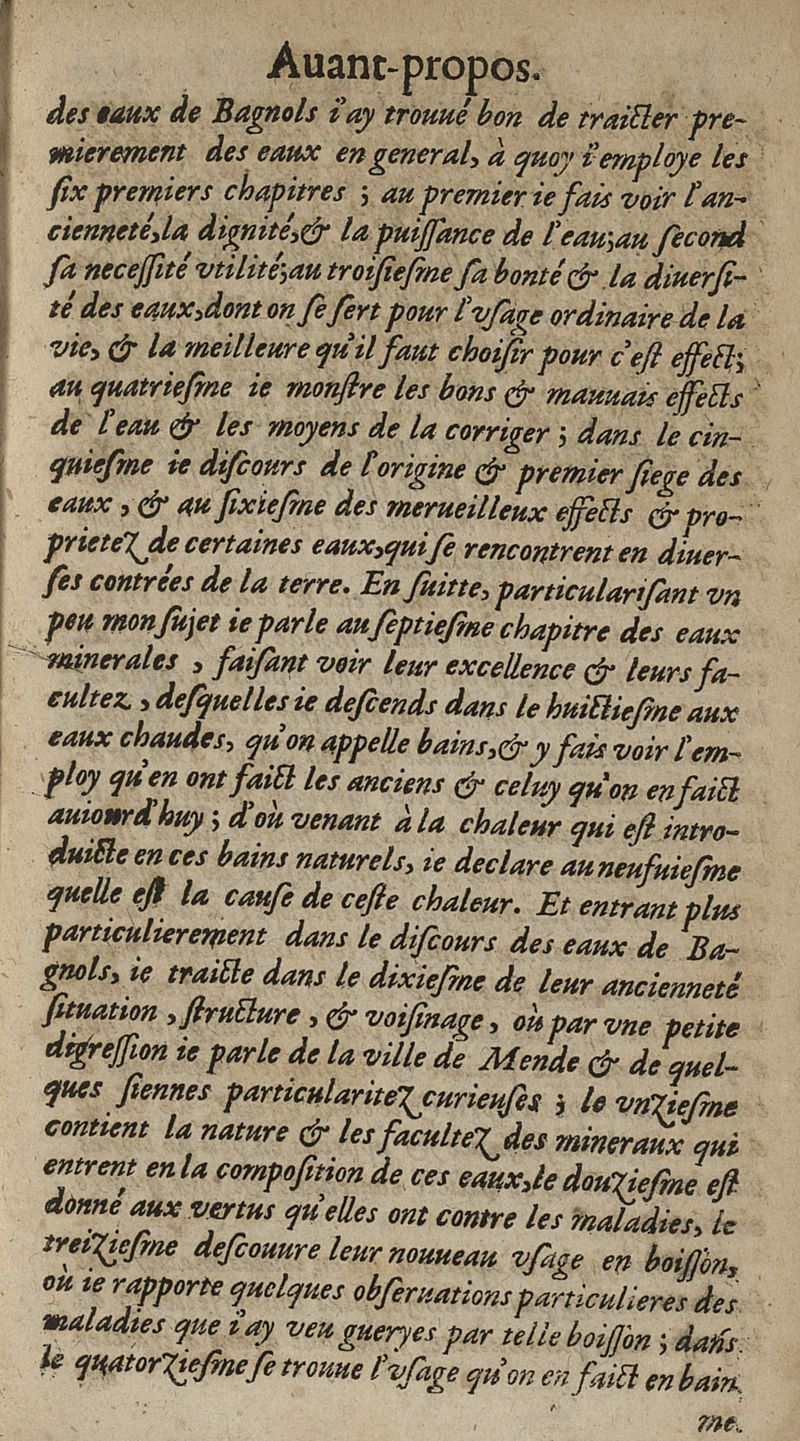 Auant-propos.
des eaux de Bagnols i'ay trouué bon de traicter pre-
mierement des eaux en general, à quoy i'employe les
ſix premiers chapitres ; au premier ie fais voir l'an-
cienneté,la dignité,& la puiſſance de l'eau;au ſecond
ſa neceſſité vtilité;au troiſieſme ſa bonté & la diuerſi-
té des eaux,dont on ſe ſert pour l'vſage ordinaire de la
vie, & la meilleure qu'il faut choiſir pour c'eſt effect;
au quatrieſme ie monſtre les bons & mauuais effects
de l'eau & les moyens de la corriger ; dans le cin-
quieſme ie diſcours de l'origine & premier ſiege des
eaux , & au ſixieſme des merueilleux effects & pro-
prietez de certaines eaux,qui ſe rencontrent en diuer-
ſes contrées de la terre. En ſuitte, particulariſant vn
peu mon ſujet ie parle au ſeptieſme chapitre des eaux
minerales , faiſant voir leur excellence & leurs fa-
cultez , deſquelles ie deſcends dans le huictieſme aux
eaux chaudes, qu'on appelle bains,& y fais voir l'em-
ploy qu'en ont faict les anciens & celuy qu'on en faict
auiourd'huy ; d'où venant à la chaleur qui eſt intro-
duicte en ces bains naturels, ie declare au neufuieſme
quelle eſt la cauſe de ceſte chaleur. Et entrant plus
particulierement dans le diſcours des eaux de Ba-
gnols, ie traicte dans le dixieſme de leur ancienneté
ſituation , ſtructure , & voiſinage , où par vne petite
digreſſion ie parle de la ville de Mende & de quel-
ques ſiennes particularitez curieuſes ; le vnzieſme
contient la nature & les facultez des mineraux qui
entrent en la compoſition de ces eaux,le douzieſme eſt
donné aux vertus qu'elles ont contre les maladies, le
treizieſme deſcouure leur nouueau vſage en boiſſon,
où ie rapporte quelques obſeruations particulieres des
maladies que i'ay veu gueryes par telle boiſſon ; dans
le quatorzieſme ſe trouue l'vſage qu'on en faict en bain
me.